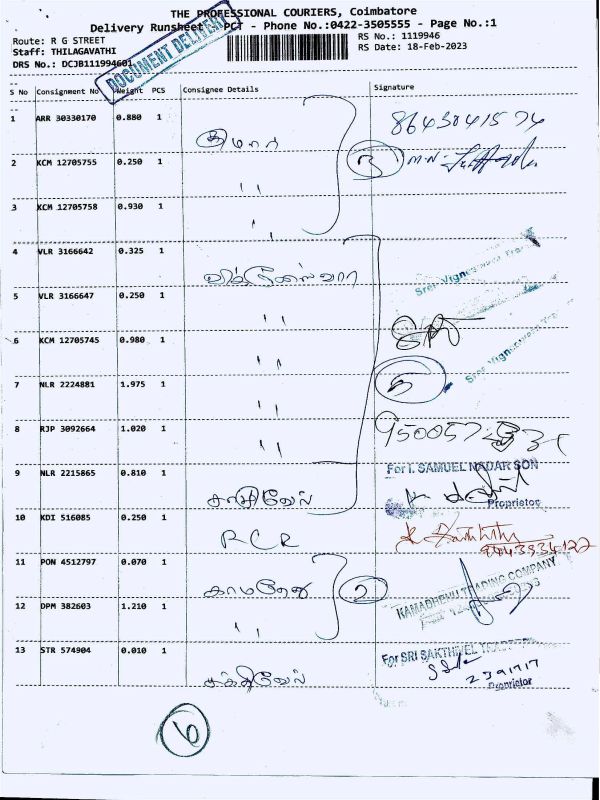 THE PROFESSIONAL COURIERS, Coimbatore
Delivery Runsheet - PCT - Phone No.:0422-3505555 - Page No.:1
Route: R G STREET
RS No.: 1119946
Staff: THILAGAVATHI
RS Date: 18-Feb-2023
DRS No.: DCJB111994601
DOCUMENT DELIVERY
S No Consignment No Weight PCS Consignee Details Signature
1 ARR 30330170 0.880 1
குமார்
2 KCM 12705755 0.250 1
" 
3 KCM 12705758 0.930 1
"
4 VLR 3166642 0.325 1
Sree Vigneswara
5 VLR 3166647 0.250 1
"
6 KCM 12705745 0.980 1
"
Sree Vigneswara
7 NLR 2224881 1.975 1
"
5
8 RJP 3092664 1.020 1
"
9 NLR 2215865 0.810 1
For I. SAMUEL NADAR SON
Proprietor
10 KDI 516085 0.250 1
RCR
11 PON 4512797 0.070 1
காமதேனு
2
KAMADHENU TRADING COMPANY
12 DPM 382603 1.210 1
"
13 STR 574904 0.010 1
For SRI SAKTHIVEL TRADERS
Proprietor
சக்திவேல்
6